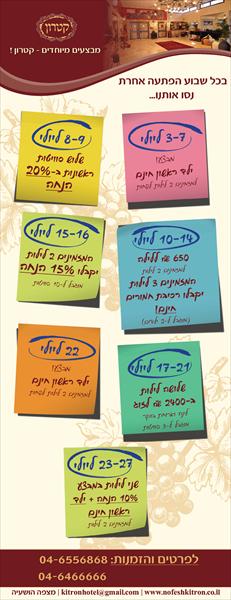 קטרון
מבצעים מיוחדים - קטרון !
בכל שבוע הפתעה אחרת
נסו אותנו...
3-7 ליולי
מבצע!
ילד ראשון חינם
למזמינים 2 לילות לפחות
8-9 ליולי
שלוש סוויטות
ראשונות ב-20%
הנחה
10-14 ליולי
650 ₪ ללילה
למזמינים 2 לילות
המזמינים 3 לילות
יקבלו רכיבת חמורים
חינם!
15-16 ליולי
המזמינים 2 לילות
יקבלו 15% הנחה
17-21 ליולי
שלושה לילות
ב-2400 ₪ לזוג
22 ליולי
ילד ראשון חינם
למזמינים 2 לילות לפחות
23-27 ליולי
שני לילות במבצע
10% הנחה + ילד
ראשון חינם
למזמינים 2 לילות
לפרטים והזמנות: 04-6556868
04-6466666
מצפה הושעיה | kitronhotel@gmail.com | www.nofeshkitron.co.il